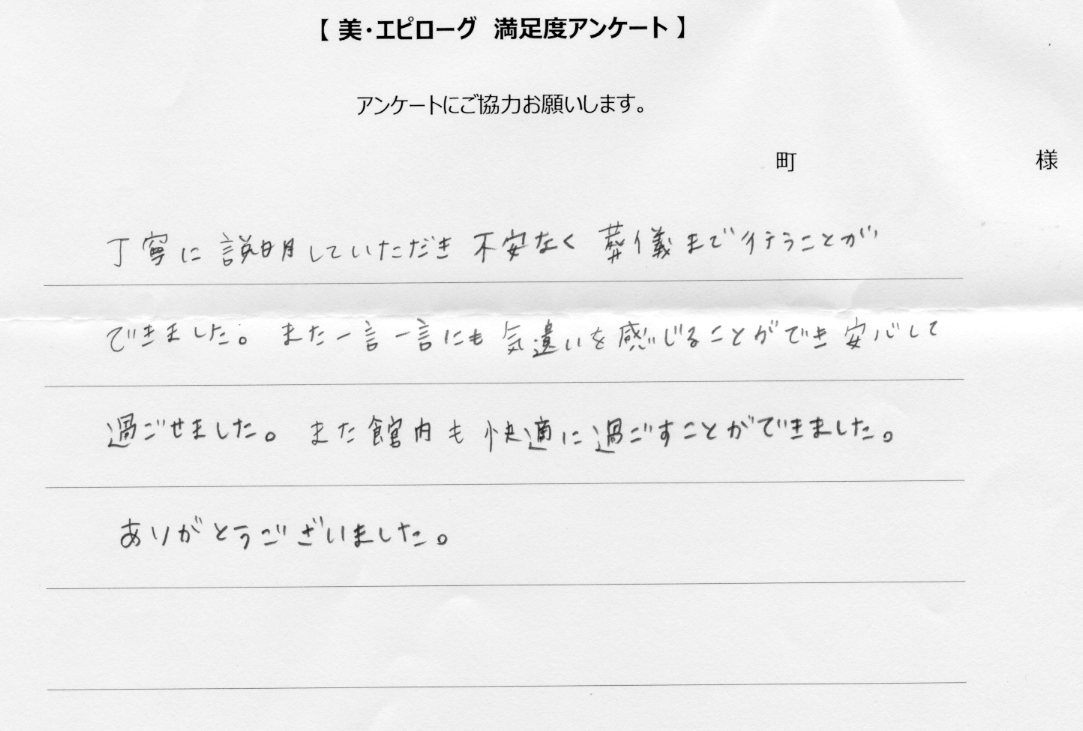 【 美・エピローグ 満足度アンケート 】
アンケートにご協力お願いします。
町 様
丁寧に説明していただき不安なく葬儀まで行うことが
できました。また一言一言にも気遣いを感じることができ安心して
過ごせました。また館内も快適に過ごすことができました。
ありがとうございました。